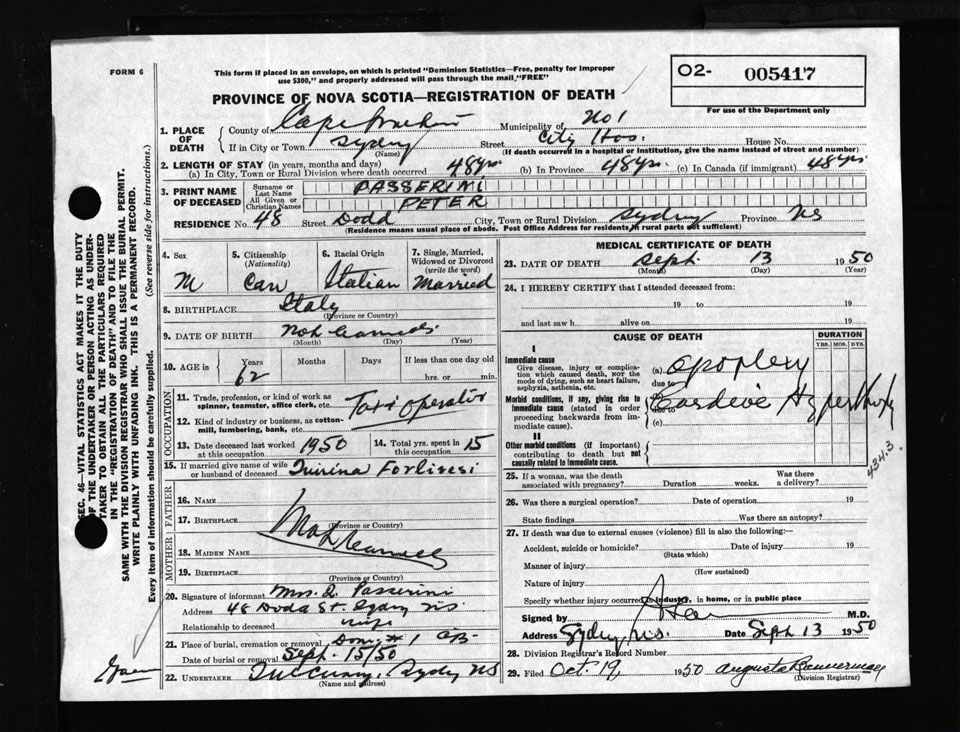 FORM 6
This form if placed in an envelope, on which is printed "Dominion Statistics—Free, penalty for improper
use $300," and properly addressed will pass through the mail, "FREE"
O2- 005417
For use of the Department only
PROVINCE OF NOVA SCOTIA—REGISTRATION OF DEATH
1. PLACE OF DEATH
County of Cape Breton Municipality of No 1
If in City or Town Sydney (Name) Street City Hos. House No.
(If death occurred in a hospital or institution, give the name instead of street and number)
2. LENGTH OF STAY (in years, months and days)
(a) In City, Town or Rural Division where death occurred 48 yrs. (b) In Province 48 yrs. (c) In Canada (if immigrant) 48 yrs
3. PRINT NAME OF DECEASED
Surname or Last Name PASSERINI
All Given or Christian Names PETER
RESIDENCE No. 48 Street Dodd City, Town or Rural Division Sydney Province NS
(Residence means usual place of abode. Post Office Address for residents in rural parts not sufficient)
4. Sex M
5. Citizenship (Nationality) Can
6. Racial Origin Italian
7. Single, Married, Widowed or Divorced (write the word) Married
8. BIRTHPLACE Italy
(Province or Country)
9. DATE OF BIRTH
(Month) (Day) (Year)
10. AGE in Years 62 Months Days If less than one day old
hrs. or min.
OCCUPATION
11. Trade, profession or kind of work as
spinner, teamster, office clerk, etc. Taxi operator
12. Kind of industry or business, as cotton-
mill, lumbering, bank, etc.
13. Date deceased last worked at this occupation 1950
14. Total yrs. spent in this occupation 15
15. If married give name of wife
or husband of deceased Forlivesi
FATHER
16. NAME
17. BIRTHPLACE
(Province or Country)
MOTHER
18. MAIDEN NAME
19. BIRTHPLACE
(Province or Country)
20. Signature of informant Mrs. Passerini
Address 48 Dodd St. Sydney NS
Relationship to deceased wife
21. Place of burial, cremation or removal # 1 CB
Date of burial or removal Sept. 15/50
22. UNDERTAKER Sydney NS
(Name and address)
MEDICAL CERTIFICATE OF DEATH
23. DATE OF DEATH Sept. 13 1950
(Month) (Day) (Year)
24. I HEREBY CERTIFY that I attended deceased from:
19 to 19
and last saw h alive on 19
CAUSE OF DEATH
DURATION
YRS. MOS. DYS.
I
Immediate cause
Give disease, injury or complica-
tion which caused death, NOT the
mode of dying, such as heart failure,
asphyxia, asthenia, etc.
(a) apoplexy
due to
Morbid conditions, if any, giving rise to
immediate cause (stated in order
proceeding backwards from im-
mediate cause).
due to
(c)
II
Other morbid conditions (if important)
contributing to death but not
causally related to immediate cause.
434.3
25. If a woman, was the death
associated with pregnancy? Duration weeks. Was there
a delivery?
26. Was there a surgical operation? Date of operation 19
State findings Was there an autopsy?
27. If death was due to external causes (violence) fill in also the following:
Accident, suicide or homicide? Date of injury 19
(State which)
Manner of injury
(How sustained)
Nature of injury
Specify whether injury occurred in industry, in home, or in public place
Signed by M.D.
Address Sydney, N.S. Date Sept 13 1950
28. Division Registrar's Record Number
29. Filed Oct. 19, 1950
(Division Registrar)
SEC. 46—VITAL STATISTICS ACT MAKES IT THE DUTY
OF THE UNDERTAKER OR PERSON ACTING AS UNDER-
TAKER TO OBTAIN ALL THE PARTICULARS REQUIRED
IN THE "REGISTRATION OF DEATH" AND TO FILE THE
SAME WITH THE DIVISION REGISTRAR WHO SHALL ISSUE THE BURIAL PERMIT.
WRITE PLAINLY WITH UNFADING INK. THIS IS A PERMANENT RECORD.
Every item of information should be carefully supplied. (See reverse side for instructions.)